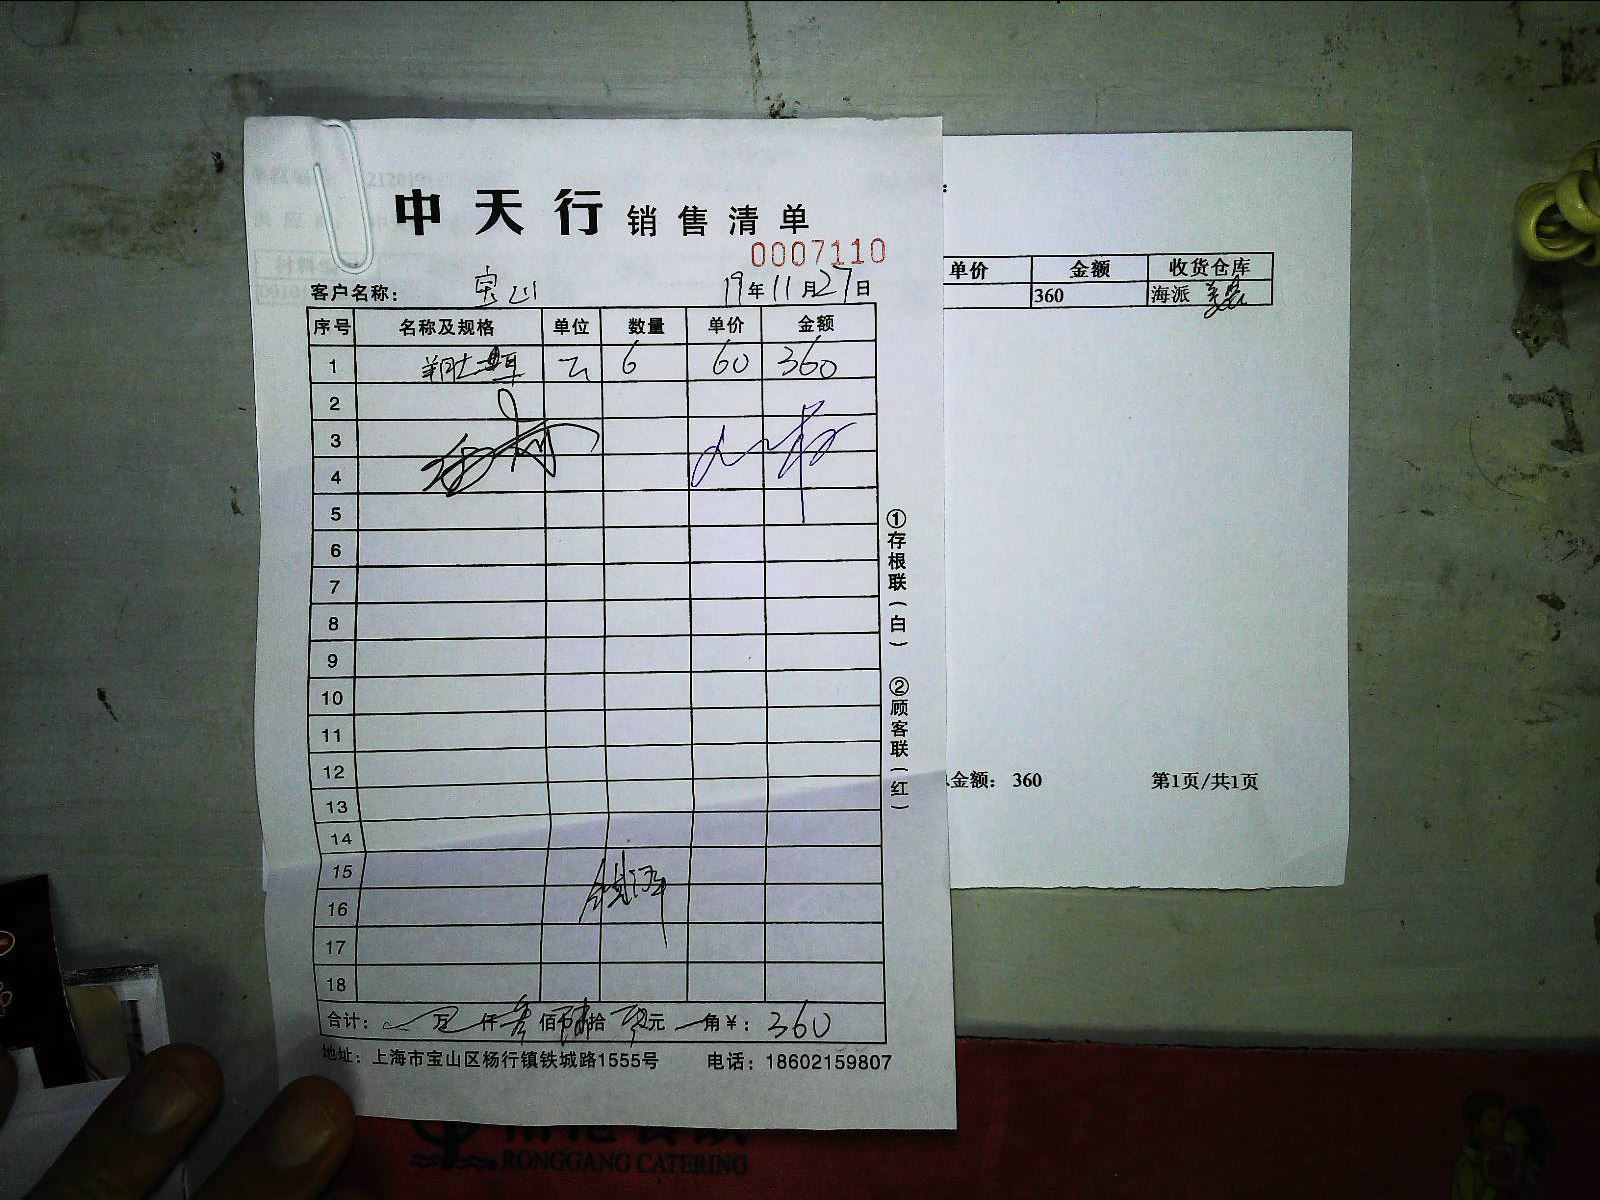 中天行 销售清单
0007110
客户名称： 宝山 19年11月27日
序号 名称及规格 单位 数量 单价 金额
1 6 60 360
2
3
4
5
6
7
8
9
10
11
12
13
14
15
16
17
18
合计： 万 仟叁佰陆拾零元 角￥： 360
地址：上海市宝山区杨行镇铁城路1555号 电话：18602159807
①存根联（白） ②顾客联（红）
单价 金额 收货仓库
360 海派
金额： 360 第1页/共1页
RONGGANG CATERING